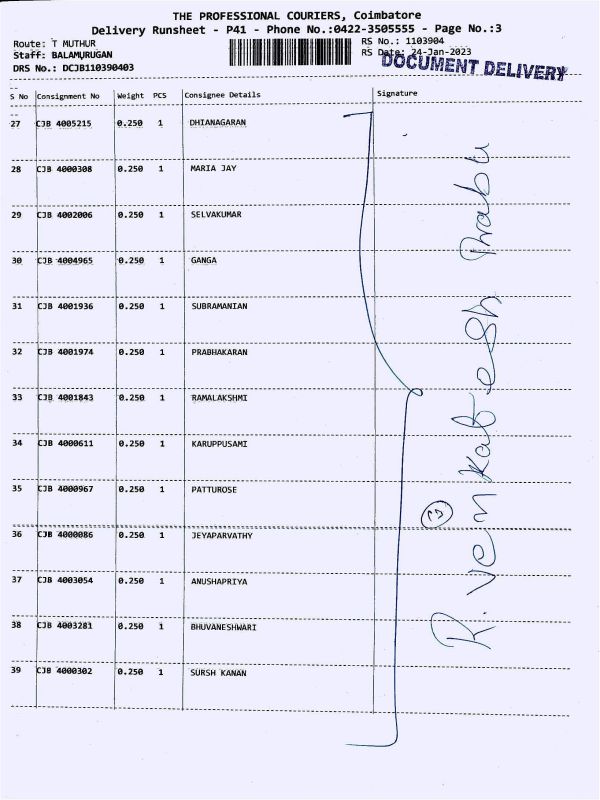 THE PROFESSIONAL COURIERS, Coimbatore
Delivery Runsheet - P41 - Phone No.:0422-3505555 - Page No.:3
Route: T MUTHUR RS No.: 1103904
Staff: BALAMURUGAN RS Date: 24-Jan-2023
DRS No.: DCJB110390403 DOCUMENT DELIVERY
S No Consignment No Weight PCS Consignee Details Signature
27 CJB 4005215 0.250 1 DHIANAGARAN
28 CJB 4000308 0.250 1 MARIA JAY
29 CJB 4002006 0.250 1 SELVAKUMAR
30 CJB 4004965 0.250 1 GANGA
31 CJB 4001936 0.250 1 SUBRAMANIAN
32 CJB 4001974 0.250 1 PRABHAKARAN
33 CJB 4001843 0.250 1 RAMALAKSHMI
34 CJB 4000611 0.250 1 KARUPPUSAMI
35 CJB 4000967 0.250 1 PATTUROSE
36 CJB 4000086 0.250 1 JEYAPARVATHY
37 CJB 4003054 0.250 1 ANUSHAPRIYA
38 CJB 4003281 0.250 1 BHUVANESHWARI
39 CJB 4000302 0.250 1 SURSH KANAN
R. venkatesh Prabu
13